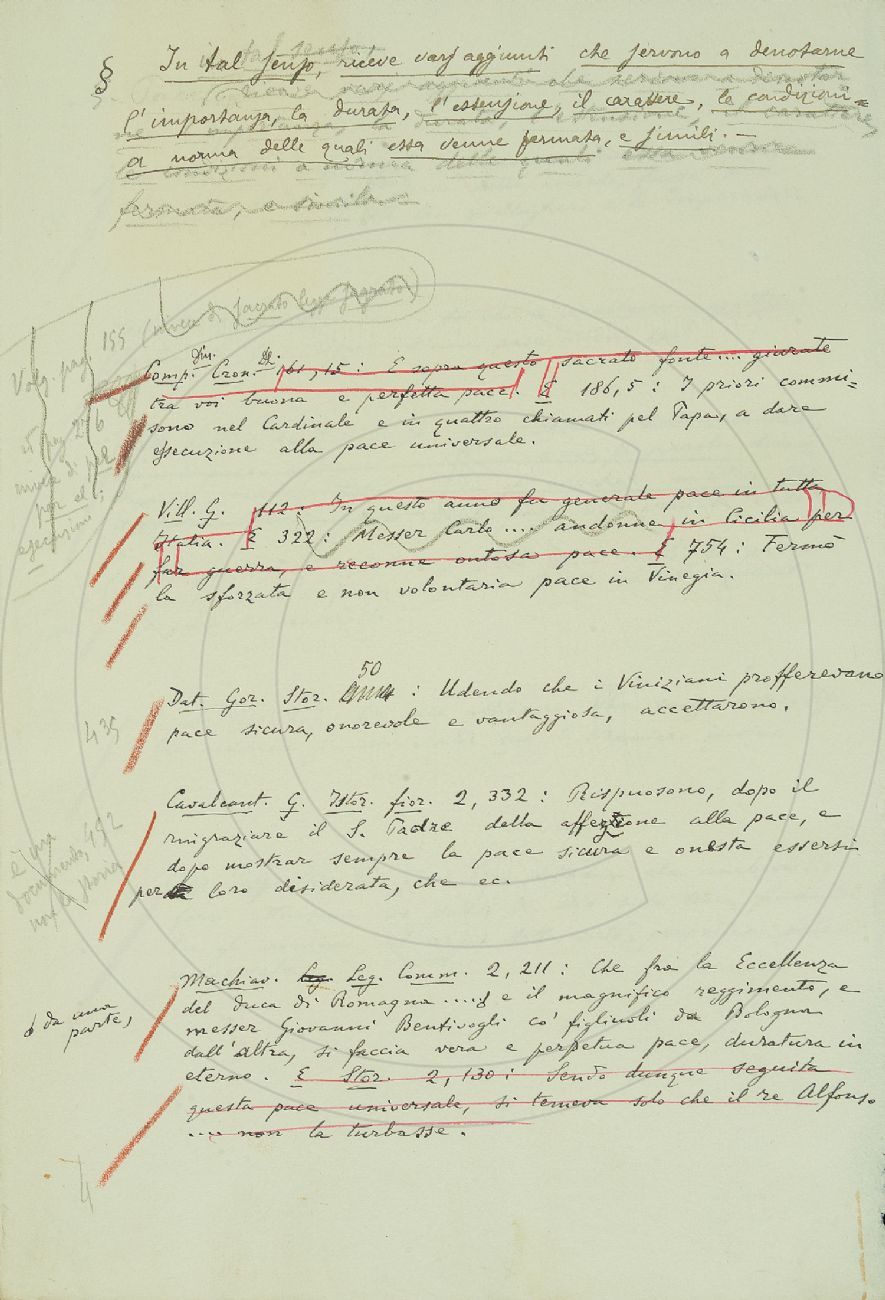 § In tal senso, riceve varj aggiunti che servono a denotarne
l'importanza, la durata, l'estensione, il carattere, le condizioni
a norma delle quali essa venne fermata, e simili. —
fermata, e simili. —
Volg. pag. 155 (invece di sacrato leggi sagrato)
Comp. Din. Cron. D. 161, 15: E sopra questo sacrato fonte .... giurate
tra voi buona e perfetta pace. E 186, 5: I priori commi=
sono nel Cardinale e in quattro chiamati pel Papa, a dare
essecuzione alla pace universale.
pag. 276
invece di pel
per el;
esecuzione
Vill. G. 112: In questo anno fu generale pace in tutta
Italia. E 322: Messer Carlo .... andonne in Cicilia per
far guerra, e reconne ontosa pace. E 754: Fermò
la sforzata e non volontaria pace in Vinegia.
Dat. Gor. Stor. 50 : Udendo che i Viniziani profferevano
pace sicura, onorevole e vantaggiosa, accettarono.
435
Cavalcant. G. Istor. fior. 2, 332: Rispuosono, dopo il
ringraziare il S. Padre della affezione alla pace, e
dopo mostrar sempre la pace sicura e onesta essersi
per loro disiderata, che ec.
documento, 492
non la storia
Machiav. Leg. Leg. Comm. 2, 211: Che fra la Eccellenza
del duca di Romagna .... e il magnifico reggimento, e
da una
parte,
messer Giovanni Bentivogli co' figliuoli da Bologna
dall'altra, si faccia vera e perpetua pace, duratura in
eterno. E Stor. 2, 130: Sendo dunque seguita
questa pace universale, si temeva solo che il re Alfonso
.... non la turbasse.